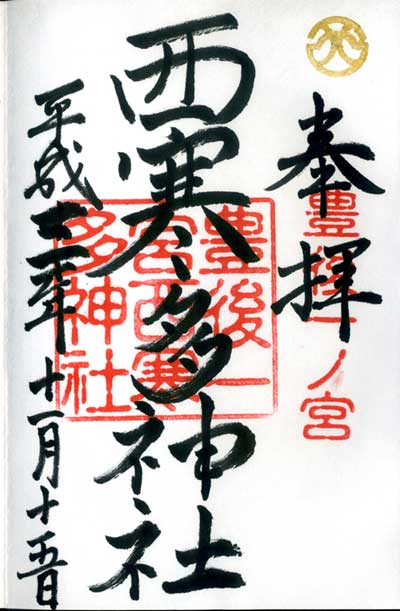 奉拝
豊後一ノ宮
西寒多神社
豊後一
宮西寒
多神社
平成十二年十一月十五日